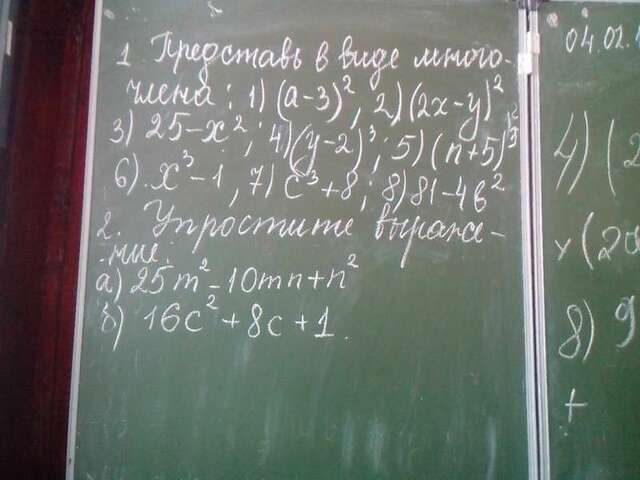 1. Представь в виде много-
члена: 1) (a-3)², 2) (2x-y)²
3) 25-x²; 4) (y-2)³; 5) (n+5)³
6) x³-1, 7) c³+8; 8) 81-4b²
2. Упростите выраже-
-ние:
a) 25m²-10mn+n²
б) 16c²+8c+1.
04.02.
4) (2
8) 9
+